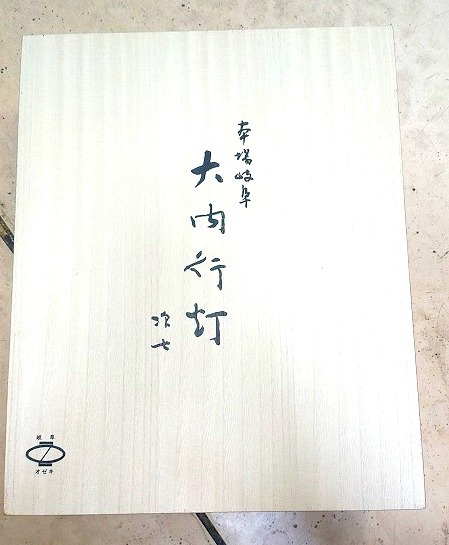 本場岐阜
大内行灯
次七
岐阜
オゼキ